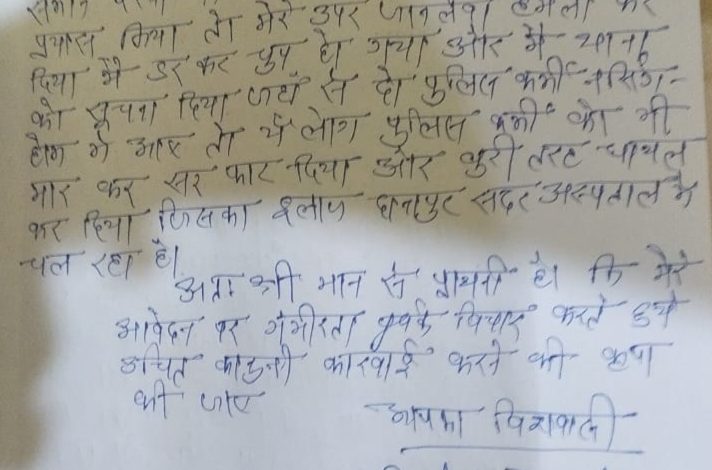 प्रयास किया तो मेरे उपर जानलेवा हमला कर
दिया मै डर कर चुप हो गया और मै थाना
को सूचना दिया जहाँ से दो पुलिस कर्मी नर्सिंग-
होम मे आए तो ये लोग पुलिस कर्मी को भी
मार कर सर फार दिया और बुरी तरह घायल
कर दिया जिसका इलाज दानापुर सदर अस्पताल मे
चल रहा है।
अतः श्री मान से प्रार्थना है। कि मेरे
आवेदन पर गंभीरता पूर्वक विचार करते हुये
उचित कानुनी कारवाई करने की कृपा
की जाए
आपका विश्वासी